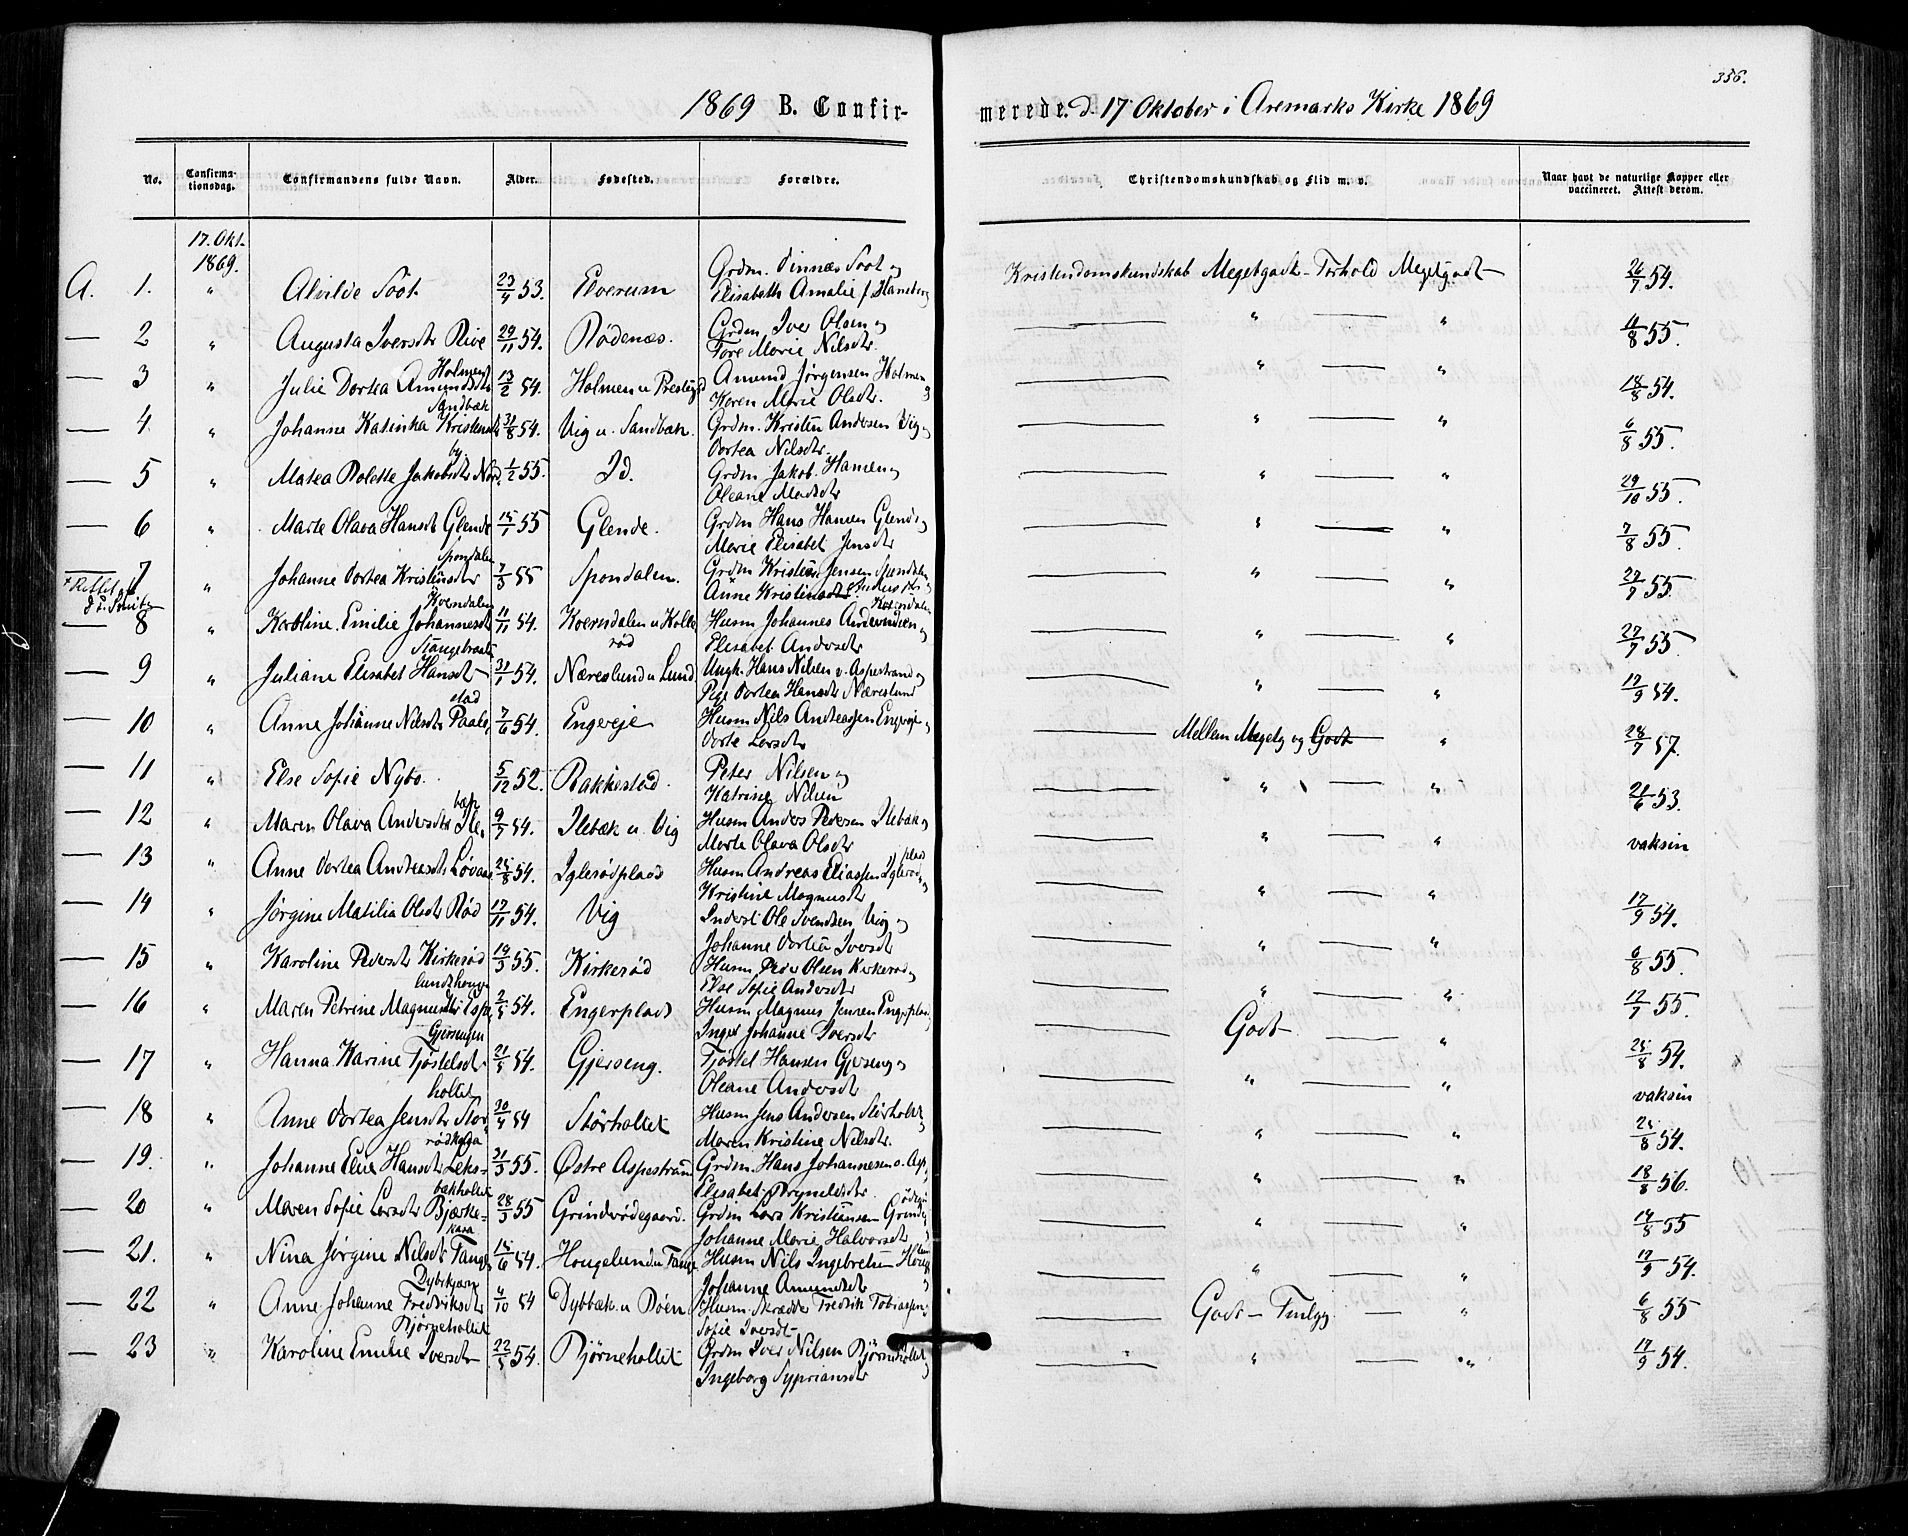 356.
1869 B. Confirmerede. d. 17 Oktober i Aremarks Kirke 1869
No. Confirmationsdag. Confirmandens fulde Navn. Alder. Fødested. Forældre. Christendomskundskab og Flid m. v. Naar havt de naturlige Kopper eller vaccineret. Attest derom.
17. Okt.
1869.
A. 1. " Alvilde Soot 23/4 53. Elverum Grdm. Soot og Elisabeth Amalie f. Kristendomskundskab Megetgodt - Forhold Megetgodt 26/7 54.
— 2 " Augusta Iversdt Rive 29/11 54. Rødenæs. Grdm. Iver Olsen og Tore Marie Nilsdt. — " — " 11/8 55.
— 3 " Julie Dortea Amundsdt Holmen 13/2 54. Holmen u Prestegd Amund Jørgensen Holmen og Karen Marie Olsdt. — " — " 18/8 54.
— 4. " Johanne Katinka Kristensdt Sandbæk 31/8 54. Vig u. Sandbæk. Grdm. Kristen Andersen Vig og Dortea Nilsdt. — " — " 6/8 55.
— 5 " Matea Bolette Jakobsdt Nordby 1/2 55. Id. Grdm Jakob Hansen og Oleane Madsdt — " — " 29/10 55.
— 6 " Marte Olava Hansdt Glende 15/1 55 Glende. Grdm Hans Hansen Glende og Marie Elisabet Jensdt — " — " 7/8 55.
— 7 " Johanne Dortea Kristensdt Spondalen 7/3 55 Spondalen. Grdm Kristian Jensen Spondalen og Anne — " — " 27/7 55.
+ Rettet af
— 8 " Karoline Emilie Johannesdt Kverndalen 11/11 54. Kverndalen u Kolle rød Husm Johannes Andersen Kverndalen og Elisabet Andersdt — " — " 27/7 55.
— 9 " Juliane Elisabet Hansdt Stangebraaten 31/1 54. Næreslund u Lund Ungk. Hans Nilsen v. Aspestrand og Pige Dortea Hansdt Næreslund — " — " 17/9 54.
— 10 " Anne Johanne Nilsdt Paalestad 7/6 54. Engveje Husm Nils Andreassen Engveje og Dorte Larsdt — Mellem Megetg og Godt — " 28/7 57.
— 11 " Else Sofie Nybo. 5/12 52. Rakkestad. Peter Nilsen og Katrine Nilsen — " — " 21/6 53.
— 12 " Maren Olava Andersdt Ilebæk 9/7 54. Ilebæk u. Vig Husm Anders Pedersen Ilebæk og Marte Olava Olsdt — " — " vaksin
— 13 " Anne Dortea Andreasdt Løvaas 25/8 54. Iglerødplads Husm Andreas Eliassen Iglerødplads og Kristine Magnusdt — " — "
— 14 " Jørgine Matilia Olsdt Rød 17/11 54. Vig Inderst Ole Svendsen Vig og Johanne Dortea Iversdt — " — " 17/9 54.
— 15 " Karoline Pedersdt Kirkerød 19/3 55. Kirkerød Husm Peder Olsen Kirkerød og Else Sofie Andersdt — " — " 6/8 55.
— 16 " Maren Petrine Magnusdt Esp lundshaug 2/5 54. Engerplads Husm Magnus Jensen Engerplads Inger Johanne Iversdt — Godt — " 17/7 55.
— 17 " Hanna Karine Tjøstelsdt Gjersengen 21/5 54. Gjerseng. Tjøstel Hansen Gjerseng og Oleane Andersdt — " — " 25/8 54.
— 18 " Anne Dortea Jensdt Storholtet 20/4 54 Størholtet Husm Jens Andersen Størholtet Maren Kristine Nilsdt. — " — " vaksin 25/8 54.
— 19. " Johanne Elise Hansdt Leks-rødhaga 21/3 55. Østre Aspestrand Grdm. Hans Johannesen ø. Asp. Elisabet Brynildsdt. — " — " 18/8 56.
— 20 " Maren Sofie Larsdt Bjærkebækholtet 28/3 55 Grindrødegaard. Grdm Lars Kristiansen Grindrødegd Johanne Marie Halvorsdt — " — " 14/8 55
— 21. " Nina Jørgine Nilsdt Tangekasa 15/6 54. Hougelund u Tange Husm Nils Ingebretsen Hougelund og Johanne Amundsdt — " — " 17/9 54.
— 22 " Anne Johanne Fredriksdt Dybekjærn 4/10 54 Dybbæk u Bøen Husm Skrædder Fredrik Tobiassen og Sofie Iversdt — Godt - Tmlgg. — " 6/8 55
— 23 " Karoline Emilie Iversdt Bjørneholtet 22/5 54. Bjørneholtet Grdm Iver Nilsen Bjørneholtet og Ingeborg Sypriansdt — " — " 17/9 54.